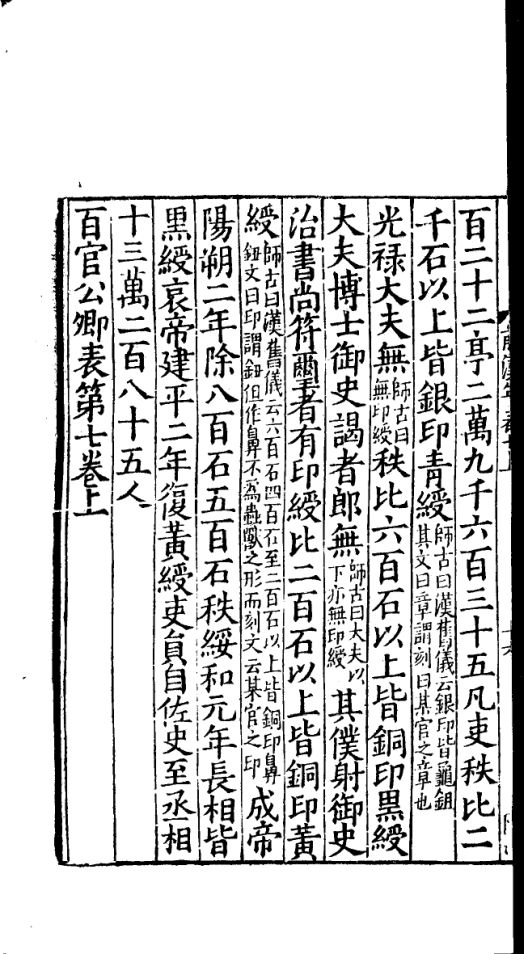 百二十二亭二萬九千六百三十五凡吏秩比二
千石以上皆銀印青綬師古曰漢舊儀云銀印皆龜鈕其文曰章謂刻曰某官之章也
光禄大夫無師古曰無印綬秩比六百石以上皆銅印黒綬
大夫博士御史謁者郎無師古曰大夫以下亦無印綬其僕射御史
治書尚符璽者有印綬比二百石以上皆銅印黃
綬師古曰漢舊儀云六百石四百石至二百石以上皆銅印鼻鈕文曰印謂鈕但作鼻不為蟲獸之形而刻文云某官之印成帝
陽朔二年除八百石五百石秩綏和元年長相皆
黒綬哀帝建平二年復黃綬吏員自佐史至丞相
十三萬二百八十五人
百官公卿表第七卷上